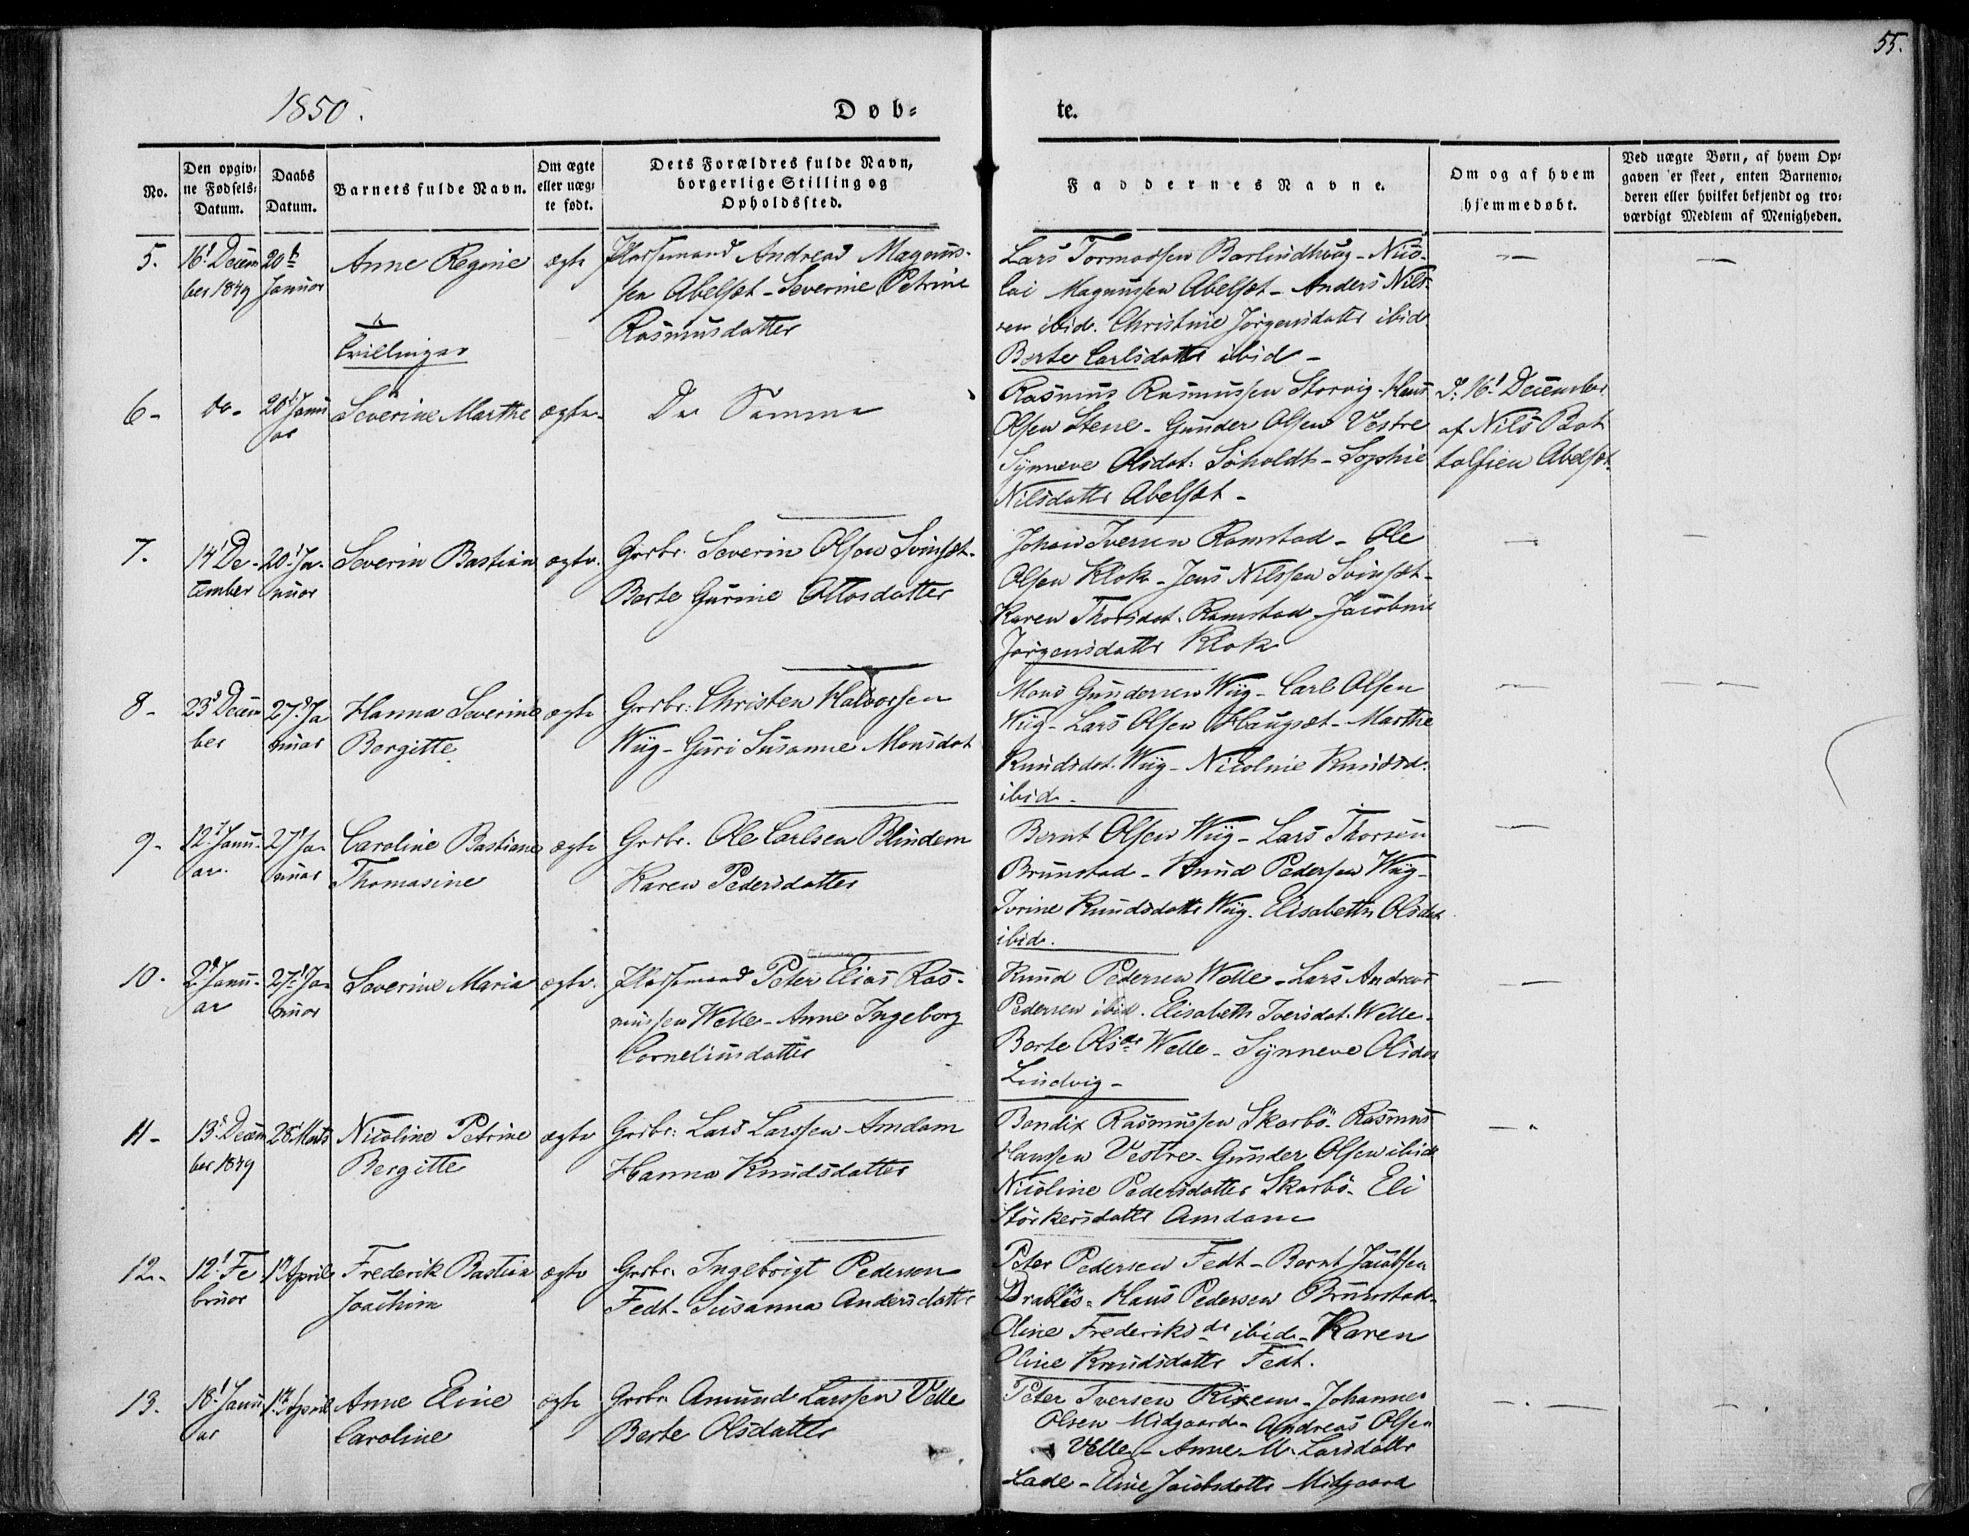 55.
1850.
Døb-
te.
No.
Den opgiv-
ne Fødsels-
Datum.
Daabs
Datum.
Barnets fulde Navn.
Om ægte
eller uæg-
te født.
Dets Forældres fulde Navn,
borgerlige Stilling og
Opholdssted.
Faddernes Navne.
Om og af hvem
hjemmedøbt.
Ved uægte Børn, af hvem Op-
gaven er skeet, enten Barnemo-
deren eller hvilket bekjendt og tro-
værdigt Medlem af Menigheden.
5.
16 Decem
ber 1849
20
Januar
Anne Regine
Tvillinger
ægte
Plassemand Andreas Magnus-
sen Abelsæt - Severine Petrine
Rasmusdatter
Lars Tormodsen Barlindhaug - Nico-
lai Magnussen Abelsæt - Anders Nils-
sen ibid. Christine Jørgensdatter ibid
Berte Carlsdatter ibid -
6 -
do -
20 Janu
ar
Severine Marthe
ægte
De Samme
Rasmus Rasmussen Storvig - Hans
Olsen Stene - Gunder Olsen Vestre
Synneve Olsdat. Søholdt - Sophie
Nilsdatter Abelsæt -
D. 16 December
af Nils Bot
tolfsen Abelsæt
7.
14 De-
cember
20 Ja-
nuar
Severin Bastian
ægte
Grbr. Severin Olsen Svinsæt -
Berte Gurine Ottosdatter
Johan Iversen Ramstad - Ole
Olsen Klok - Jens Nilssen Svinsæt -
Karen Thorsdat. Ramstad - Jacobine
Jørgensdatter Klok
8 -
23 Decem
ber
27 Ja
nuar
Hanna Severine
Borgitte
ægte
Grbr. Christen Halvorsen
Wiig - Guri Susanne Monsdat
Mons Gundersen Wiig - Carl Olsen
Wiig - Lars Olsen Haugsæt - Marthe
Knudsdat. Wiig - Nicoline Knudsd.
ibid -
9 -
12 Janu-
ar.
27 Ja-
nuar
Caroline Bastiane
Thomasine
ægte
Grbr. Ole Carlsen Blindem
Karen Pedersdatter
Bernt Olsen Wiig - Lars Thorsen
Brunstad - Knud Pedersen Wiig -
Iverine Knudsdatter Wiig - Elisabeth Olsdat
ibid.
10 -
2 Janu-
ar
27 Ja-
nuar
Severine Maria
ægte
Plassemand Peter Elias Ras-
mussen Welle - Anne Ingeborg
Corneliusdatter
Knud Pedersen Welle - Lars Andreas
Pedersen ibid. Elisabeth Iversdat. Welle -
Berte Olsdr Welle - Synneve Olsdat
Lindvig -
11 -
13 Decem
ber 1849
28 Marts
Nicoline Petrine
Bergitte
ægte
Grbr. Lars Larssen Amdam
Hanna Knudsdatter
Bendix Rasmussen Skarbö - Rasmus
Hanssen Vestre - Gunder Olsen ibid
Nicoline Pedersdatter Skarbö - Eli
Störkersdatter Amdam
12 -
12 Fe
bruar
1 April
Frederik Bastian
Joachim
ægte
Grbr. Ingebrigt Pedersen
Fedt - Susanna Andersdatter
Peter Pedersen Fedt - Bernt Jacobsen
Drabløs - Hans Pedersen Brunstad -
Oline Frederiksdr ibid - Karen
Oline Knudsdatter Fedt.
13.
18 Janu
ar
1 April
Anne Eline
Caroline
ægte
Grbr. Amund Larssen Velle
Berte Olsdatter
Peter Iversen Rixem - Johannes
Olsen Midgaard - Andreas Olsen
Velle - Anne M. Larsdatter
Lade - Eline Jacobsdatter Midgaard